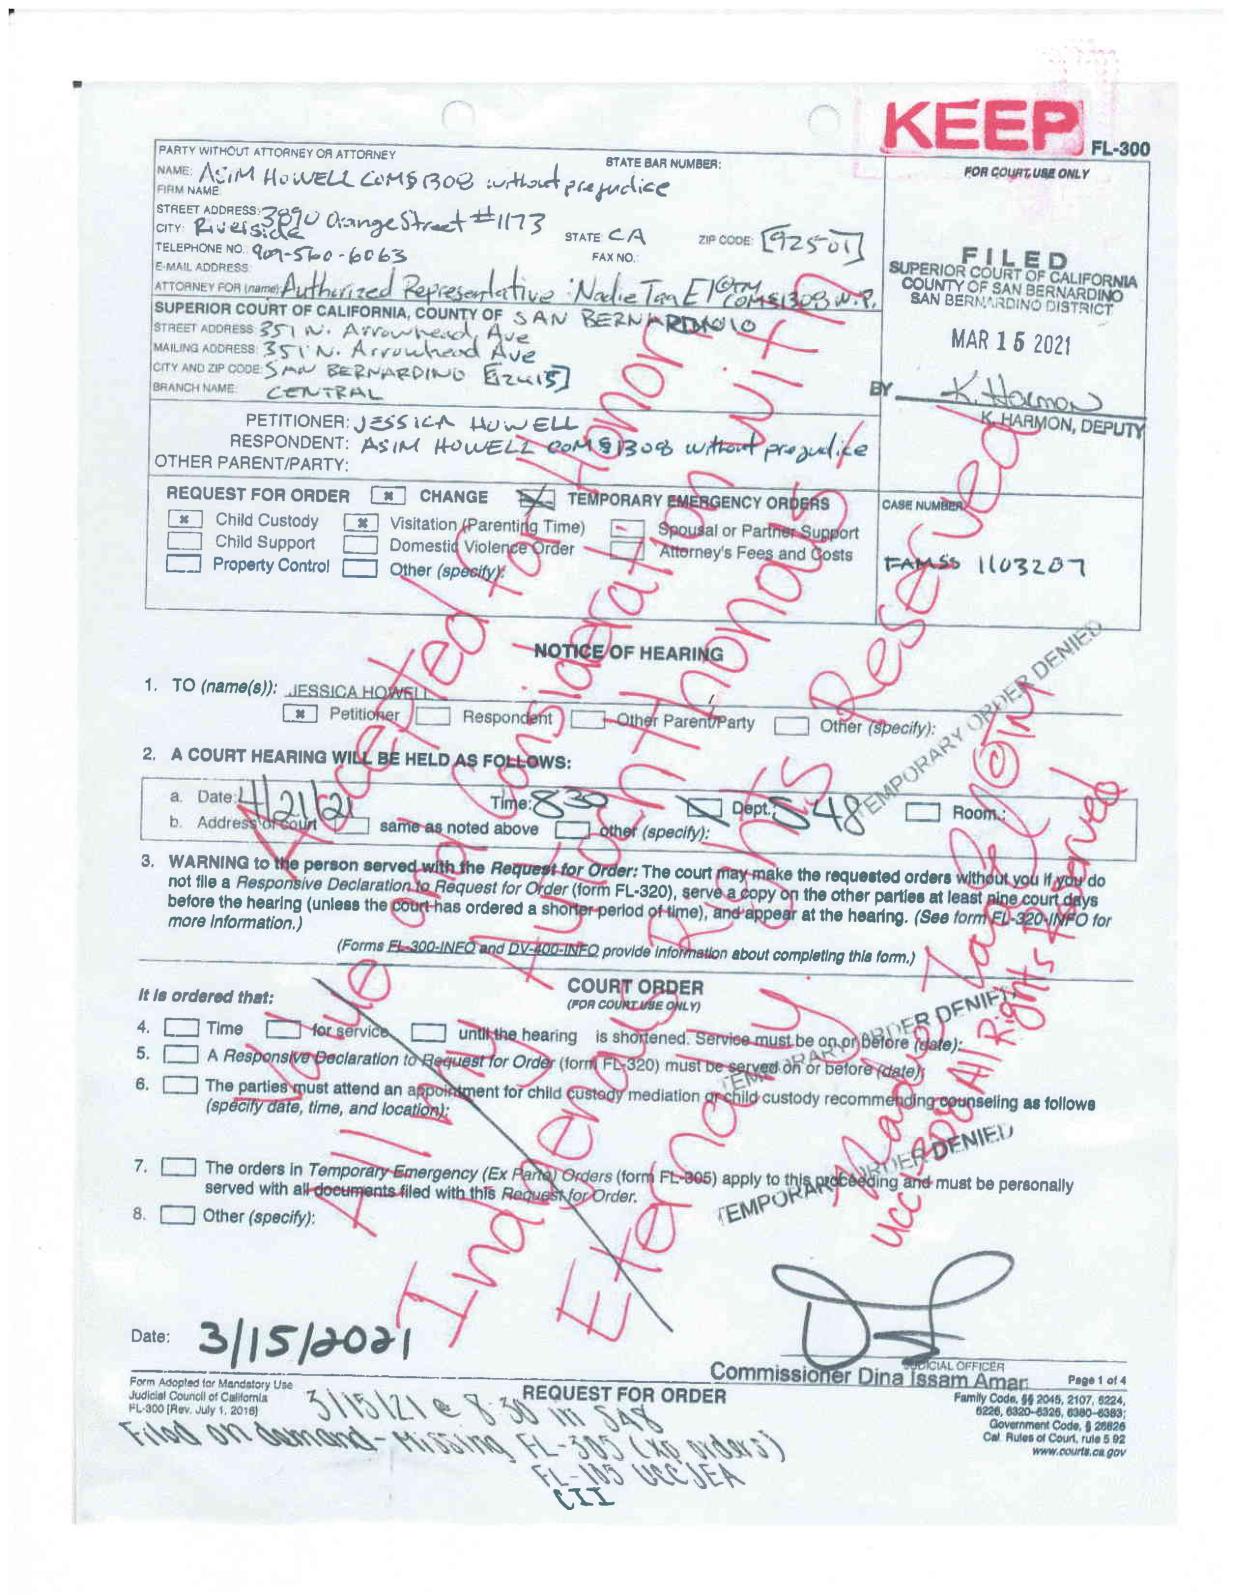 KEEP
FL-300
PARTY WITHOUT ATTORNEY OR ATTORNEY
STATE BAR NUMBER:
NAME: ASIM HOWELL COM§1308 without prejudice
FIRM NAME:
STREET ADDRESS: 3890 Orange Street #1173
CITY: Riverside
STATE CA
ZIP CODE: [92501]
TELEPHONE NO.: 909-560-6063
FAX NO.:
E-MAIL ADDRESS:
ATTORNEY FOR (name): Authorized Representative: Nadie Tan El©TM COM§1308 W.P.
SUPERIOR COURT OF CALIFORNIA, COUNTY OF SAN BERNARDINO
STREET ADDRESS: 351 N. Arrowhead Ave
MAILING ADDRESS: 351 N. Arrowhead Ave
CITY AND ZIP CODE: SAN BERNARDINO
BRANCH NAME: CENTRAL
FOR COURT USE ONLY
FILED
SUPERIOR COURT OF CALIFORNIA
COUNTY OF SAN BERNARDINO
SAN BERNARDINO DISTRICT
MAR 15 2021
BY K. Harmon
K. HARMON, DEPUTY
PETITIONER: JESSICA HOWELL
RESPONDENT: ASIM HOWELL COM§1308 without prejudice
OTHER PARENT/PARTY:
REQUEST FOR ORDER
CHANGE
TEMPORARY EMERGENCY ORDERS
Child Custody
Visitation (Parenting Time)
Spousal or Partner Support
Child Support
Domestic Violence Order
Attorney's Fees and Costs
Property Control
Other (specify):
CASE NUMBER:
FAMSS 1103207
NOTICE OF HEARING
1. TO (name(s)): JESSICA HOWELL
Petitioner
Respondent
Other Parent/Party
Other (specify):
2. A COURT HEARING WILL BE HELD AS FOLLOWS:
a. Date: 4/21/21
Time: 830
Dept.: S48
Room.:
b. Address of court
same as noted above
other (specify):
3. WARNING to the person served with the Request for Order: The court may make the requested orders without you if you do
not file a Responsive Declaration to Request for Order (form FL-320), serve a copy on the other parties at least nine court days
before the hearing (unless the court has ordered a shorter period of time), and appear at the hearing. (See form FL-320-INFO for
more information.)
(Forms FL-300-INFO and DV-400-INFO provide information about completing this form.)
COURT ORDER
(FOR COURT USE ONLY)
It is ordered that:
4. Time for service until the hearing is shortened. Service must be on or before (date):
5. A Responsive Declaration to Request for Order (form FL-320) must be served on or before (date):
6. The parties must attend an appointment for child custody mediation or child custody recommending counseling as follows
(specify date, time, and location):
7. The orders in Temporary Emergency (Ex Parte) Orders (form FL-305) apply to this proceeding and must be personally
served with all documents filed with this Request for Order.
8. Other (specify):
TEMPORARY ORDER DENIED
TEMPORARY ORDER DENIED
TEMPORARY ORDER DENIED
Accepted for Honor
Value and Consideration with
All my Autochthonous
Indigenous Rights Reserved
Externally.
UCC 1-308 All Rights Reserved
Date: 3/15/2021
JUDICIAL OFFICER
Commissioner Dina Issam Amari
Page 1 of 4
Form Adopted for Mandatory Use
Judicial Council of California
FL-300 [Rev. July 1, 2016]
REQUEST FOR ORDER
Family Code, §§ 2045, 2107, 6224,
6226, 6320–6326, 6380–6383;
Government Code, § 26826
Cal. Rules of Court, rule 5.92
www.courts.ca.gov
3/15/21 @ 8:30 in S48
Filed on demand - Missing FL-305 (xp orders)
FL-105 UCCJEA
CII